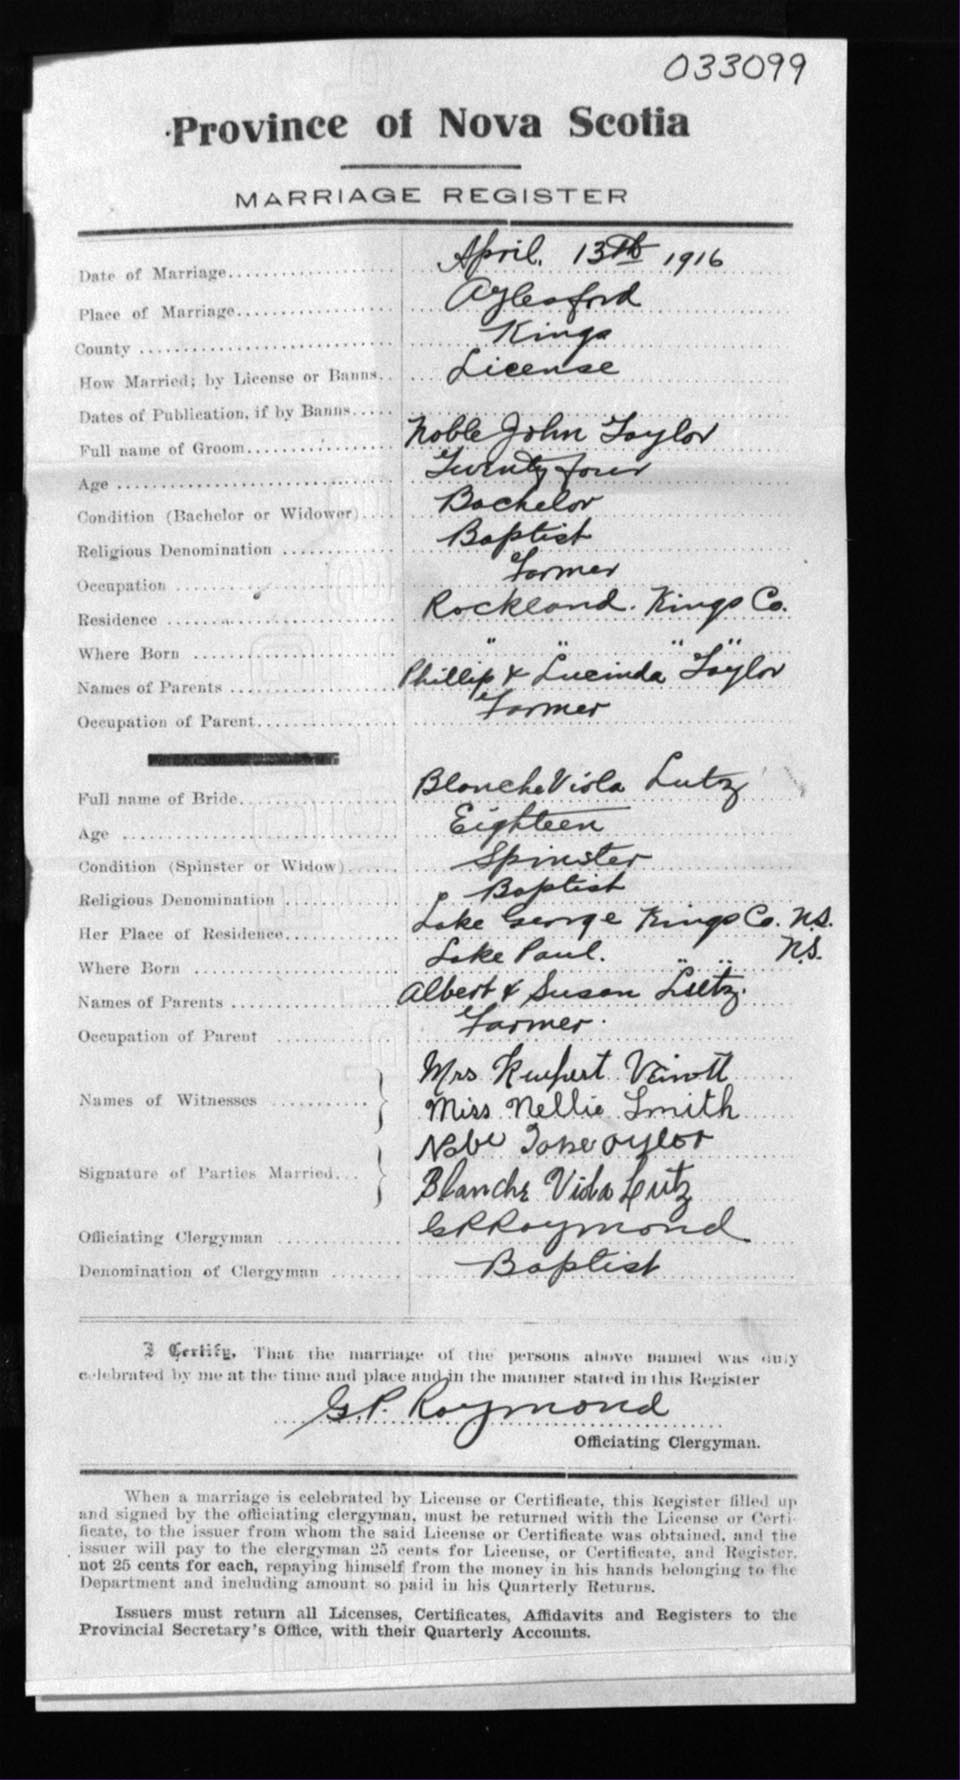 033099
Province of Nova Scotia
MARRIAGE REGISTER
Date of Marriage April. 13th 1916
Place of Marriage Aylesford
County Kings
How Married; by License or Banns License
Dates of Publication, if by Banns
Full name of Groom Noble John Taylor
Age Twenty four
Condition (Bachelor or Widower) Bachelor
Religious Denomination Baptist
Occupation Farmer
Residence Rockland. Kings Co.
Where Born " " " "
Names of Parents Phillip & Lucinda Taylor
Occupation of Parent Farmer
Full name of Bride Blanche Viola Lutz
Age Eighteen
Condition (Spinster or Widow) Spinster
Religious Denomination Baptist
Her Place of Residence Lake George Kings Co. N.S.
Where Born Lake Paul. " " N.S.
Names of Parents Albert & Susan Lutz.
Occupation of Parent Farmer.
Names of Witnesses Mrs Veinott
Miss Nellie Smith
Signature of Parties Married
Blanche Viola Lutz
Officiating Clergyman G P Raymond
Denomination of Clergyman Baptist
I Certify, That the marriage of the persons above named was duly
celebrated by me at the time and place and in the manner stated in this Register
G. P. Raymond
Officiating Clergyman.
When a marriage is celebrated by License or Certificate, this Register filled up
and signed by the officiating clergyman, must be returned with the License or Certi-
ficate, to the issuer from whom the said License or Certificate was obtained, and the
issuer will pay to the clergyman 25 cents for License, or Certificate, and Register,
not 25 cents for each, repaying himself from the money in his hands belonging to the
Department and including amount so paid in his Quarterly Returns.
Issuers must return all Licenses, Certificates, Affidavits and Registers to the
Provincial Secretary's Office, with their Quarterly Accounts.